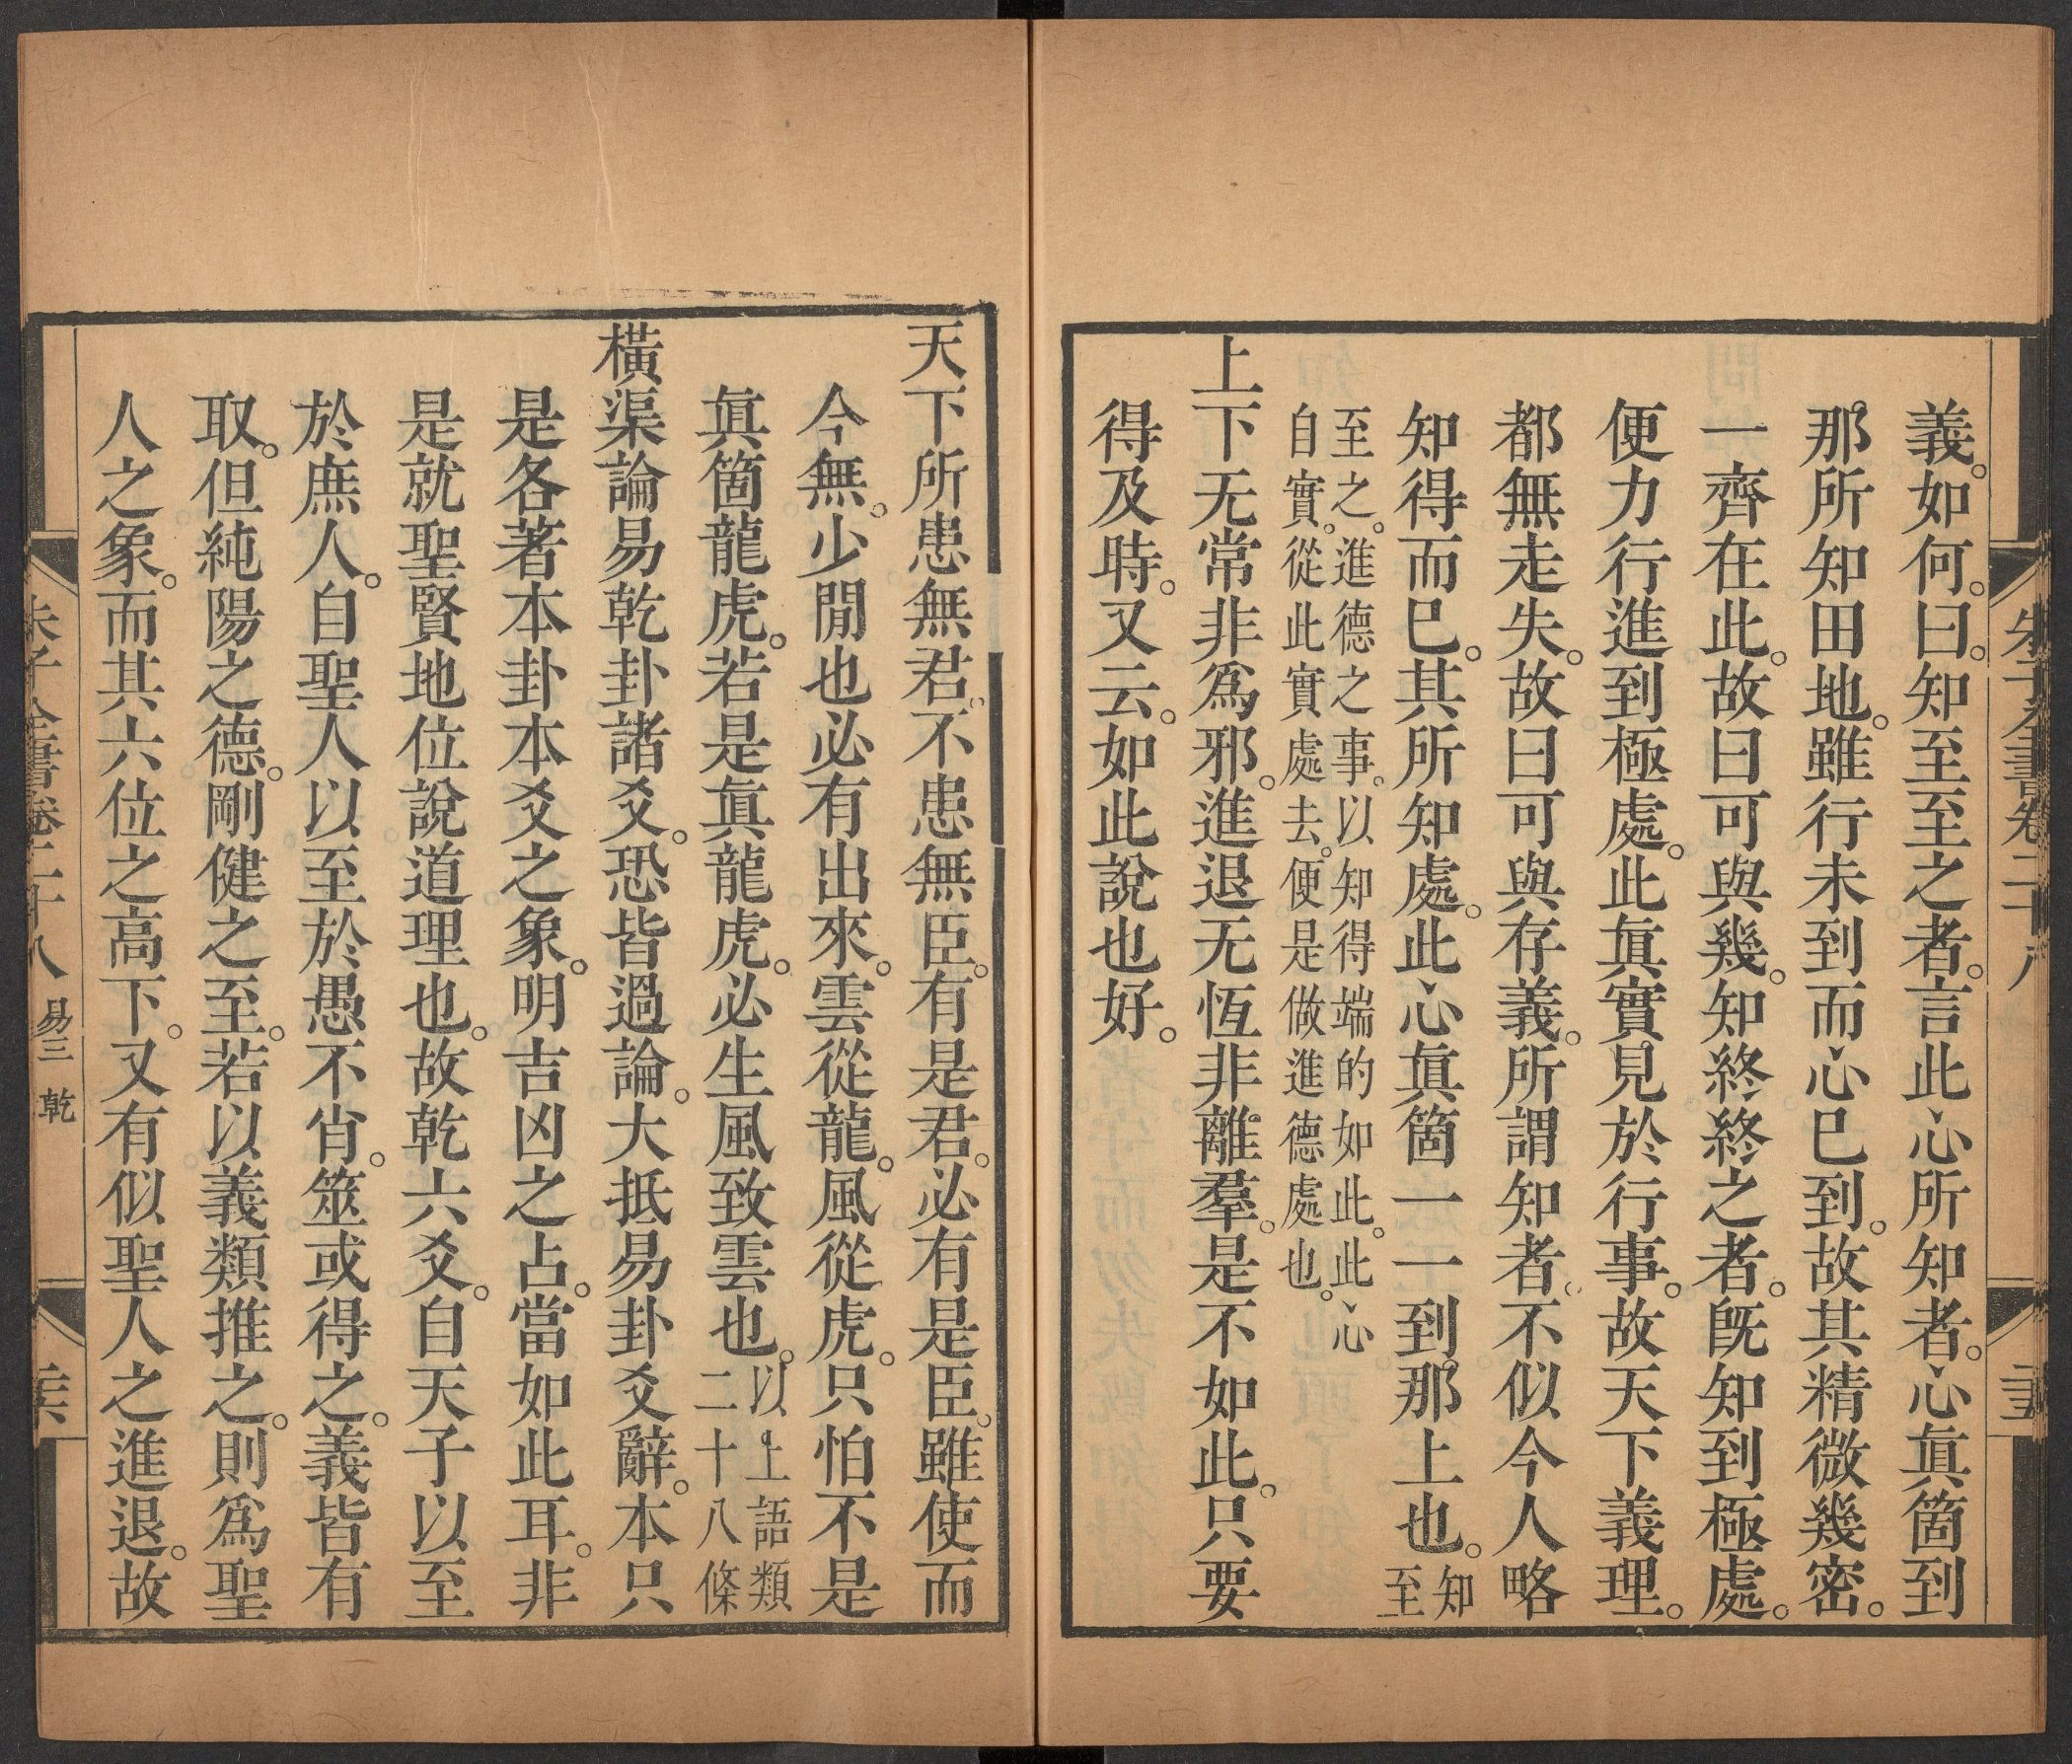 義。如何。曰。知至至之者。言此心所知者。心眞箇到
那所知田地。雖行未到而心已到。故其精微幾密。
一齊在此。故曰可與幾。知終終之者。旣知到極處。
便力行進到極處。此眞實見於行事。故天下義理。
都無走失。故曰可與存義。所謂知者。不似今人略
知得而已。其所知處。此心眞箇一一到那上也。知
至
至之。進德之事。以知得端的如此。此心
自實。從此實處去。便是做進德處也。
上下无常非爲邪。進退无恆非離羣。是不如此。只要
得及時。又云。如此說也好。
朱子全書卷二十八
天下所患無君。不患無臣。有是君。必有是臣。雖使而
今無。少閒也必有出來。雲從龍。風從虎。只怕不是
眞箇龍虎。若是眞龍虎。必生風致雲也。以上語類
二十八條
橫渠論易乾卦諸爻。恐皆過論。大抵易卦爻辭。本只
是各著本卦本爻之象。明吉凶之占。當如此耳。非
是就聖賢地位說道理也。故乾六爻。自天子以至
於庶人。自聖人以至於愚不肖。筮或得之。義皆有
取。但純陽之德。剛健之至。若以義類推之。則爲聖
人之象。而其六位之高下。又有似聖人之進退。故
朱子全書卷二十八 易三 乾